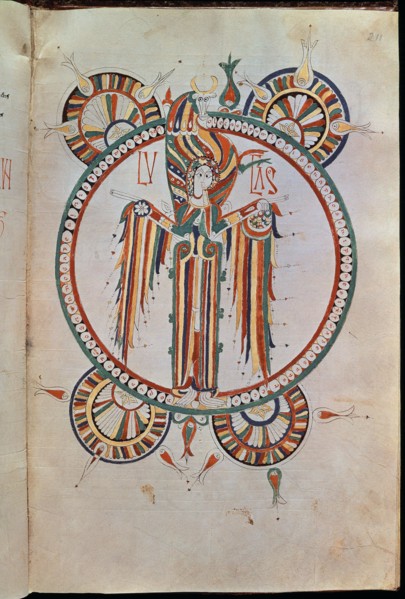 211
LV CAS